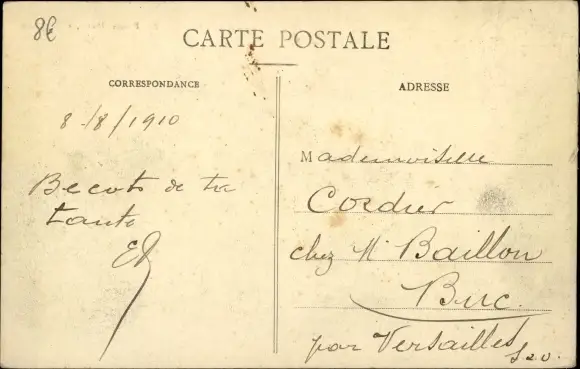 8€
CARTE POSTALE
CORRESPONDANCE
ADRESSE
8/8/1910
Becots de ta
tante
ER
Mademoiselle
Cordier
chez Mr Baillon
Buc
par Versailles
S & O.